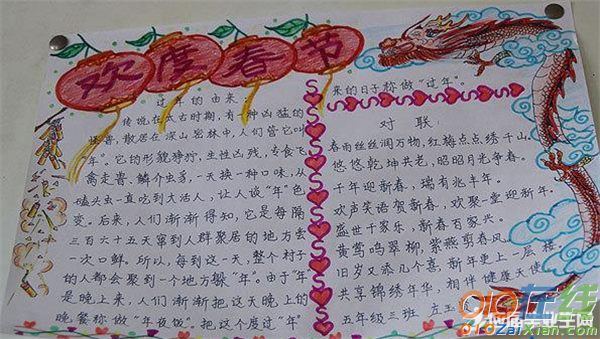 欢度春节
过年的由来:
传说在太古时期,有一种凶猛的
怪兽,散居在深山密林中,人们管它叫
"年"。它的形貌狰狞,生性凶残,专食飞
禽走兽、鳞介虫豸,一天换一种口味,从
磕头虫一直吃到大活人,让人谈"年"色
变。后来,人们渐渐得知,它是每隔
三百六十五天窜到人群聚居的地方尝
一次口鲜。所以,每到这一天,整个村子
的人都会聚到一个地方躲"年"。由于"年"
是晚上来,人们渐渐把这天晚上的
晚餐称做"年夜饭"。把这个度过"年"
来的日子称做"过年"。
对联
春雨丝丝润万物,红梅点点绣千山
悠悠乾坤共老,昭昭日月争春。
千年迎新春,瑞有兆丰年。
欢声笑语贺新春,欢聚一堂迎新年.
盛世千家乐,新春百家兴。
黄莺鸣翠柳,紫燕剪春风。
旧岁又添几个喜,新年更上一层楼
共享锦绣年华,相伴健康天使
五年级三班
910在线
910zaixian.com